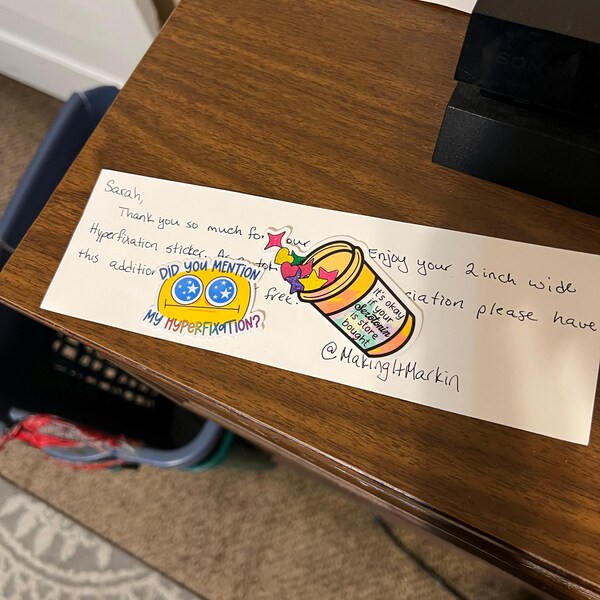 SONY
Sarah,
Thank you so much for our Enjoy your 2 inch wide
Hyperfixation sticker. As a ciation please have
this addition free.
DID YOU MENTION
MY HYPERFIXATION?
it's okay
if your
serotonin
is store
bought
@MakingItMarkin